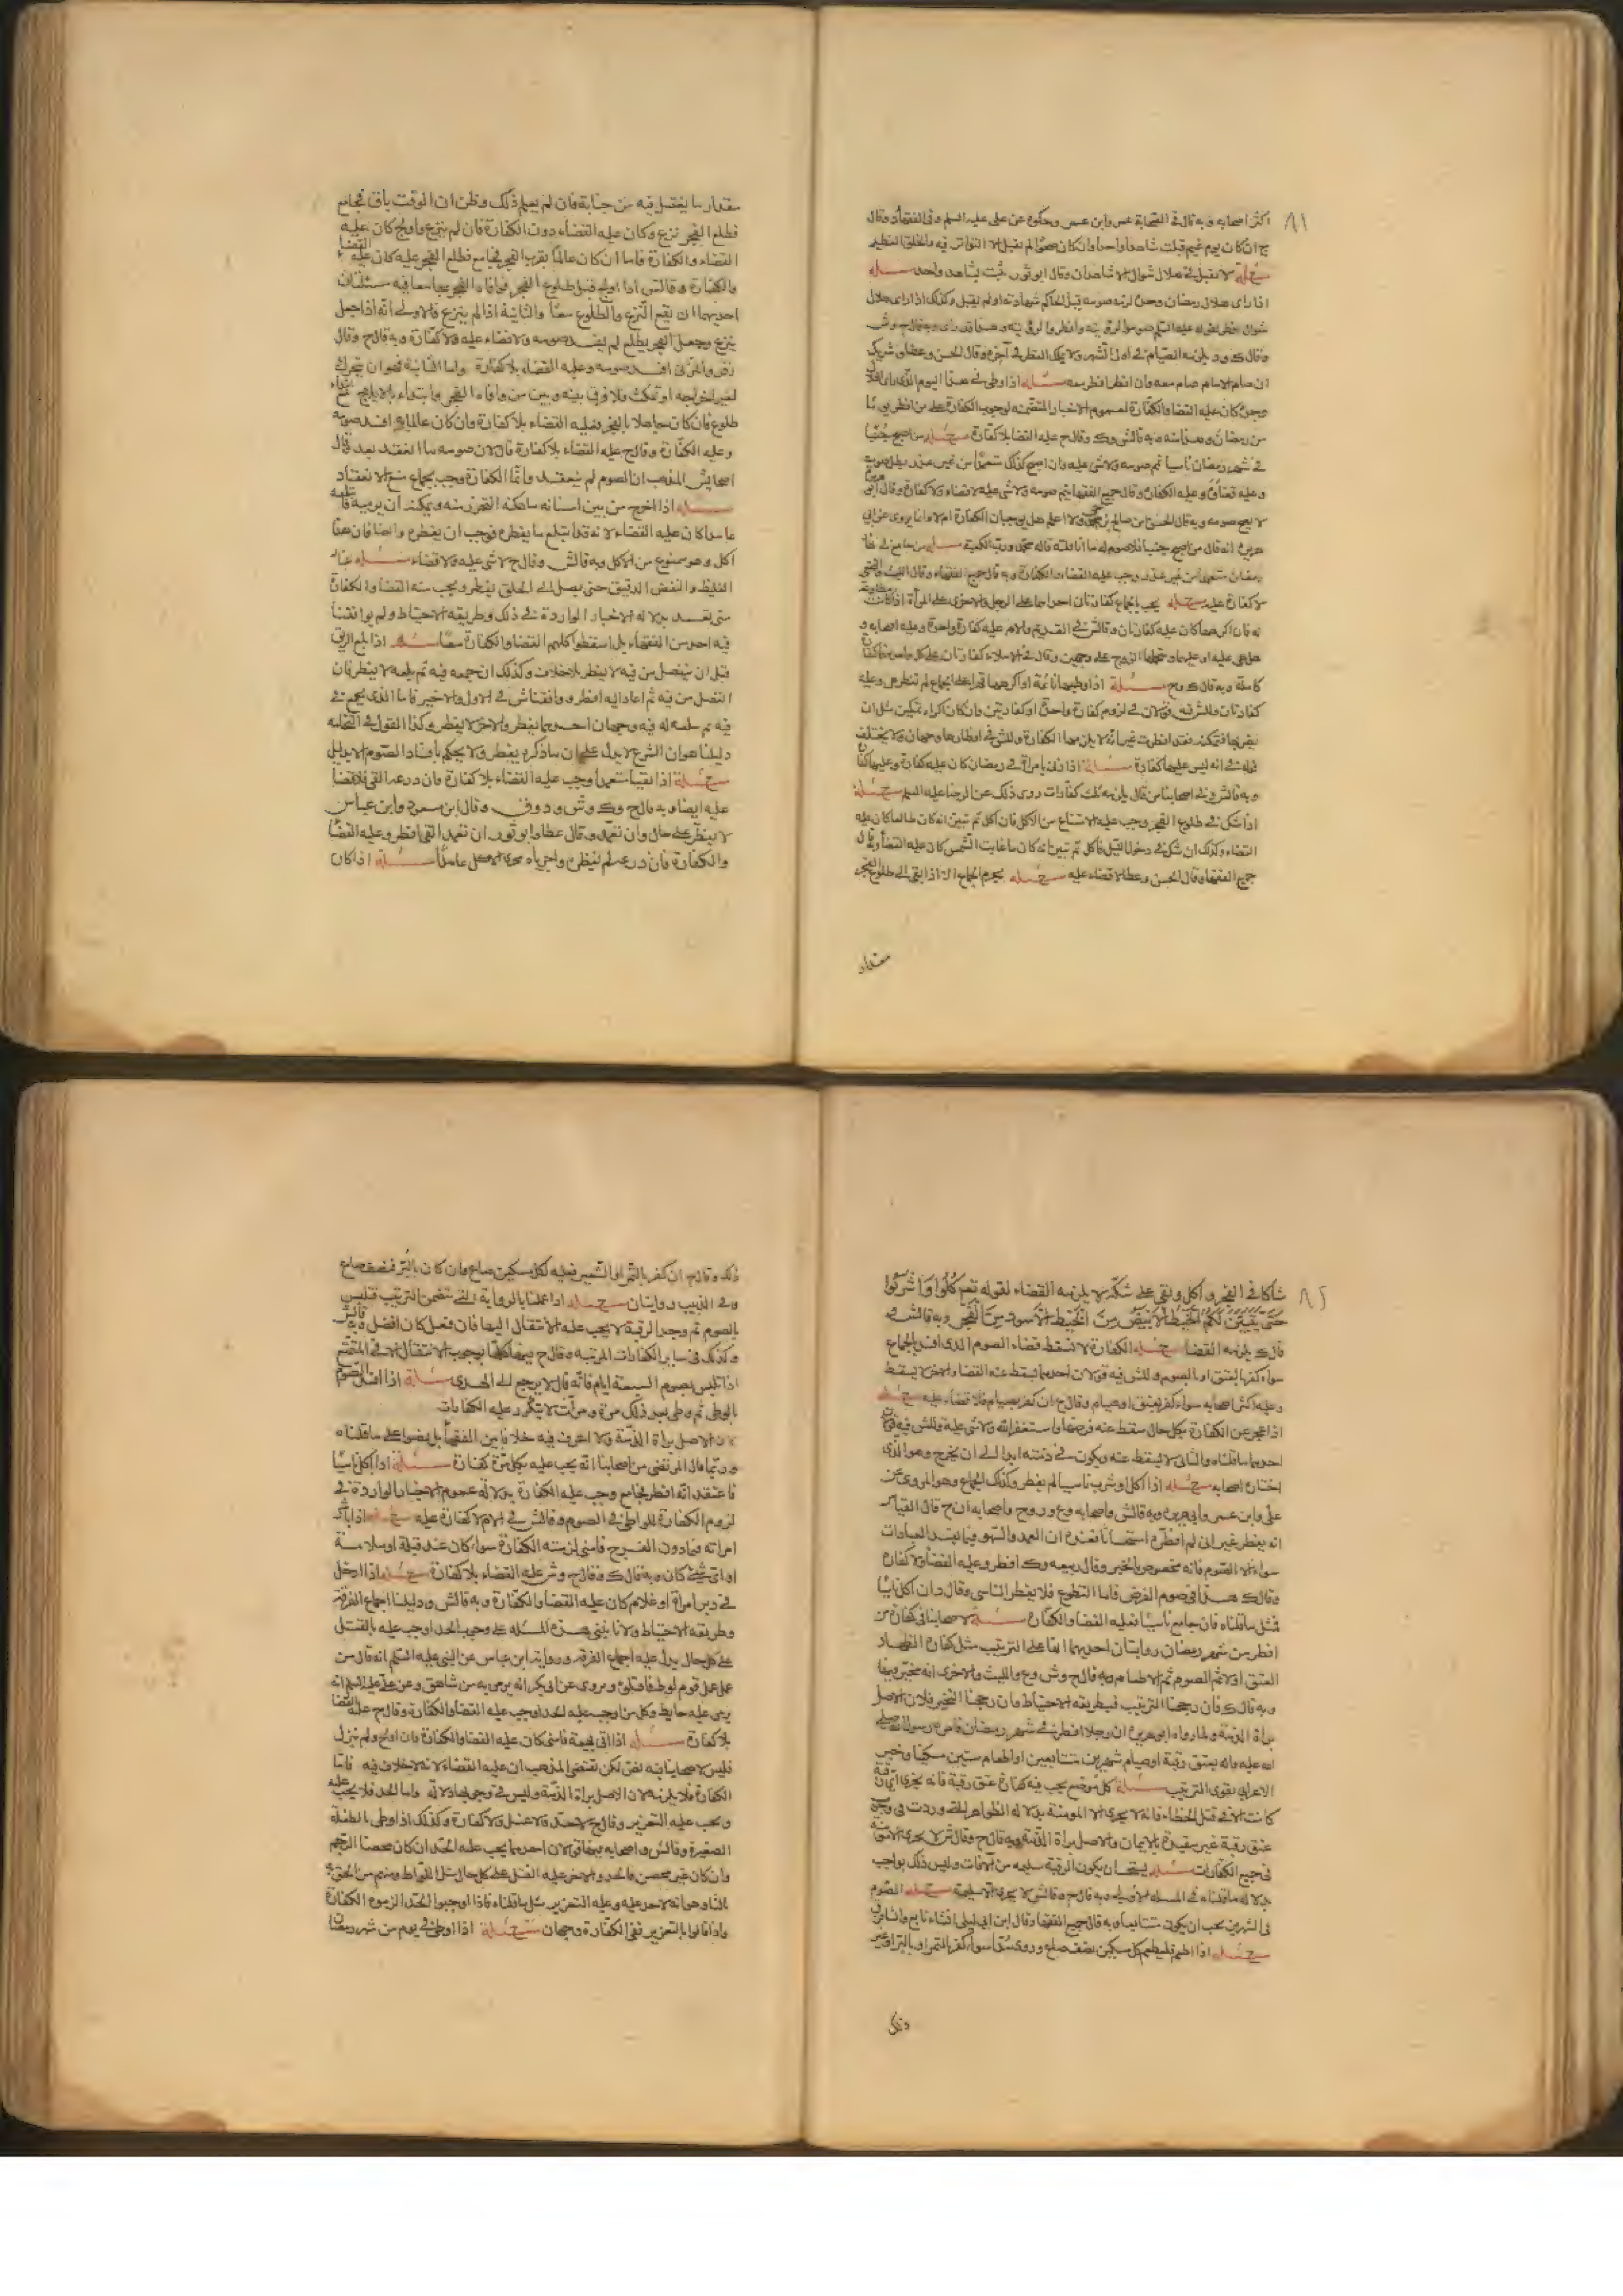 ٨١
اكثر اصحابه وبه قال فى الصحابة عمر وابن عمر وحكوه عن على عليه السلم وفى الفقهاء وقال
ح ان كان يوم غيم قبلت شاهدا واحدا وان كان صحوا لم نقبل الا التواتر فيه والخلق العظيم
مسئلة لا نقبل فى هلال شوال الا شاهدان وقال ابو ثور يثبت بشاهد واحد مسئله
اذا راى هلال رمضان وحده لزمه صومه قبل الحاكم شهادته او لم يقبل وكذلك اذا راى هلال
شوال افطر لقوله عليه السلم صوموا لرؤيته وافطروا لرؤيته وهذا قد راى وبه قال ح وش
وقال ك ود يلزمه الصيام فى اول الشهر ولا يمكنه الفطر فى آخره وقال الحسن وعطا وشريك
ان صام الامام صام معه وان افطر افطر معه مسئله اذا وطى فى هذا اليوم الذى راى الهلال
وحده كان عليه القضا والكفارة لعموم الاخبار المتضمنه لوجوب الكفارة على من افطر يوما
من رمضان وهذا منه وبه قال ش وك وقال ح عليه القضا بلا كفارة مسئله من اصبح جنبا
فى شهر رمضان ناسيا تم صومه ولا شى عليه وان اصبح كذلك متعمدا من غير عذر بطل صومه
وعليه قضاؤه وعليه الكفارة وقال جميع الفقها يتم صومه ولا شى عليه لا قضاء ولا كفارة وقال ابو هريرة
لا يصح صومه وبه قال الحسن بن صالح بن حى ولا اعلم هل يوجبان الكفارة ام لا وانما يروى عن ابى
هريرة انه قال من اصبح جنبا فلا صوم له ما انا قلته قاله محمد ورب الكعبة مسئله من جامع فى نهار
رمضان متعمدا من غير عذر وجب عليه القضاء والكفارة وبه قال جميع الفقهاء وقال الشعبى والنخعى
لا كفارة عليه مسئله يجب بالجماع كفارتان احداهما على الرجل والاخرى على المرأة اذا كانت مطاوعة
له فان اكرهها كان عليه كفارتان وقال ش فى القديم والام عليه كفارة واحدة وعليه اصحابه و
هل هى عليه او عليها ويتحملها الزوج على وجهين وقال فى الاملاء كفارتان على كل واحد منهما كفارة
كاملة وبه قال ك وح مسئلة اذا وطيها نائمة او اكرهها قهرا على الجماع لم تفطر هى وعليه
كفارتان وللش فيه قولان فى لزوم كفارة واحدة او كفارتين وان كان اكراه تمكين مثل ان
يضربها فتمكنه فقد افطرت غير انه لا يلزمها الكفارة وللش فى افطارها وجهان ولا يختلف
قوله فى انه ليس عليها كفارة مسئله اذا زنى بامرأة فى رمضان كان عليه كفارة وعليها كفارة
وبه قال ش وفى اصحابنا من قال يلزمه ثلث كفارات روى ذلك عن الرضا عليه السلم مسئله
اذا شك فى طلوع الفجر وجب عليه الامتناع من الاكل فان اكل ثم تبين انه كان طالعا كان عليه
القضاء وكذلك ان شك فى دخول الليل فاكل ثم تبين انه كان ما غابت الشمس كان عليه القضا وبه قال
جميع الفقها وقال الحسن وعطا لا قضاء عليه مسئله يحرم الجماع اذا بقى الى طلوع الفجر
مقدار
مقدار ما يغتسل فيه من جنابة فان لم يعلم ذلك وظن ان الوقت باق فجامع
فطلع الفجر نزع وكان عليه القضاء دون الكفارة فان لم ينزع واولج كان عليه
القضاء والكفارة فاما ان كان عالما بقرب الفجر فجامع فطلع الفجر عليه كان عليه القضا
والكفارة وقال ش اذا اولج قبل طلوع الفجر فوافاه الفجر مجامعا فيه مسئلتان
احديهما ان يقع النزع والطلوع معا والثانية اذا لم ينزع فالاولى انه اذا جعل
ينزع وجعل الفجر يطلع لم يفسد صومه ولا قضاء عليه ولا كفارة وبه قال ح وقال
زفر والمزنى افسد صومه وعليه القضاء بلا كفارة واما الثانية فهو ان تحرك
لغير اخراجه او تمكث فلا فرق بينه وبين من وافاه الفجر وابتداء بالايلاج مع ابتداء
طلوع فان كان جاهلا بالفجر فعليه القضاء بلا كفارة وان كان عالما به افسد صومه
وعليه الكفارة وقال ح عليه القضاء بلا كفارة قال لان صومه ما انعقد بعد قال
اصحاب ش المذهب ان الصوم لم ينعقد وانما الكفارة وجب بجماع منع الانعقاد
مسئله اذا اخرج من بين اسنانه ما يمكنه التحرز منه ويمكنه ان يرميه فابتلعه
عامدا كان عليه القضاء لانه قد ابتلع ما يفطره فوجب ان يفطره وايضا فان هذا
اكل وهو ممنوع من الاكل وبه قال ش وقال ح لا شى عليه ولا قضاء مسئله غبار
الغليظ والنفض الدقيق حتى يصل الى الحلق يفطر ويجب منه القضا والكفارة
متى تعمد بدلالة الاخبار الواردة فى ذلك وطريقه الاحتياط ولم يوافقنا
فيه احد من الفقهاء بل اسقطوا كلهم القضا والكفارة معا مسئله اذا بلع الريق
قبل ان ينفصل من فيه لا يفطر بلا خلاف وكذلك ان جمعه فيه ثم بلعه لا يفطر فان
انفصل من فيه ثم اعاد اليه افطر ووافقنا ش فى الاول والاخير فاما الذى يجمع فى
فيه ثم بلعه له فيه وجهان احدهما يفطر والاخر لا يفطر وكذا القول فى النخامة
دليلنا هو ان الشرع لا يدل على ان ما ذكره يفطر ولا يحكم بافساد الصوم الا بدليل
مسئله اذا تقيأ متعمدا وجب عليه القضاء بلا كفارة وان درعه القى فلا قضا
عليه ايضا وبه قال ح وك وش ود وف وقال ابن مسعود وابن عباس
لا يفطر على حال وان تعمد وقال عطا وابو ثور ان تعمد القى افطر وعليه القضا
والكفارة فان درعه لم يفطره واجرياه مجرى الاكل عامدا مسئله اذا كان
٨٢
شاكا فى الفجر واكل وبقى على شكه لا يلزمه القضاء لقوله تعم كُلُوا وَاشْرَبُوا
حَتَّى يَتَبَيَّنَ لَكُمُ الْخَيْطُ الْأَبْيَضُ مِنَ الْخَيْطِ الْأَسْوَدِ مِنَ الْفَجْرِ وبه قال ش و
قال ك يلزمه القضا مسئله الكفارة لا تسقط قضاء الصوم الذى افسد بالجماع
سواء كفر بالعتق او بالصوم وللش فيه قولان احدهما يسقط عنه القضا والاخر لا يسقط
وعليه اكثر اصحابه سواء كفر بعتق او صيام وقال ح ان كفر بصيام فلا قضاء عليه مسئله
اذا عجز عن الكفارة بكل حال سقط عنه فرضها واستغفر الله ولا شى عليه وللش فيه قولان
احدهما ما قلناه والثانى لا يسقط عنه ويكون فى ذمته ابدا الى ان يخرج وهو الذى
اختاره اصحابه مسئله اذا اكل او شرب ناسيا لم يفطر وكذلك الجماع وهو المروى عن
على وابن عمر وابى هريرة وبه قال ش واصحابه وع ور وح واصحابه الا ان ح قال القياس
انه يفطر غير انى لم افطره استحسانا بعذره ان العمد والسهو فيما يفسد العبادات
سواء الا الصوم فانه مخصوص بالخبر وقال ربيعه وك افطر وعليه القضا ولا كفارة
وقال ك هذا فى صوم الفرض فاما التطوع فلا يفطر الناسى وقال د ان اكل ناسيا
فمثل ما قلناه فان جامع ناسيا فعليه القضا والكفارة مسئله لاصحابنا فى كفارة من
افطر من شهر رمضان روايتان احديهما انها على الترتيب مثل كفارة الظهار
العتق اولا ثم الصوم ثم الاطعام وبه قال ح وش وع والليث والاخرى انه مخير فيها
وبه قال ك فان رجحنا الترتيب فبطريقة الاحتياط وان رجحنا التخيير فلان الاصل
براة الذمة ولما رواه ابو هريرة ان رجلا افطر فى شهر رمضان فامره رسول الله صلى
الله عليه واله بعتق رقبة او صيام شهرين متتابعين او اطعام ستين مسكينا وخبر
الاعرابى يقوى الترتيب مسئله كل موضع يجب فيه كفارة عتق رقبة فانه يجزى اى رقبة
كانت الا فى قتل الخطاء فانه لا يجزى الا المومنة بدلالة الظواهر التى وردت فى وجوب
عتق رقبة غير مقيدة بالايمان والاصل براة الذمة وبه قال ح وقال ش لا يجزى الا مؤمنة
فى جميع الكفارات مسئله يستحب ان يكون الرقبة سليمه من الآفات وليس ذلك بواجب
بدلالة ما قلناه فى المسئلة الاولى وبه قال ح وقال ش لا يجزى الا سليمة مسئله الصوم
فى الشهرين يجب ان يكون متتابعا وبه قال جميع الفقها وقال ابن ابى ليلى ان شاء تابع وان شاء فرق
مسئله اذا اطعم فليطعم كل مسكين نصف صاع وروى مدا سواء كفر بالتمر او بالبر او غير
ذلك
ذلك وقال ح ان كفر بالتمر او الشعير فعليه لكل مسكين صاع وان كان بالبر فنصف صاع
وفى الزبيب روايتان مسئله اذا عملنا بالرواية التى تضمن الترتيب فتلبس
بالصوم ثم وجد الرقبة لا يجب عليه الانتقال اليها فان فعل كان افضل وبه قال ش
وكذلك فى ساير الكفارات المرتبه وقال ح فيها كلها بوجوب الانتقال الا فى المتمتع
اذا تلبس بصوم السبعة ايام فانه قال لا يرجع الى الهدى مسئلة اذا افسد الصوم
بالوطى ثم وطى بعد ذلك مرة ومرات لا يتكرر عليه الكفارات
لان الاصل براة الذمة ولا اعرف فيه خلافا بين الفقها بل نصوا على ما قلناه
وربما قال المرتضى من اصحابنا انه يجب عليه بكل مرة كفارة مسئلة اذا اكل ناسيا
فاعتقد انه افطر فجامع وجب عليه الكفارة بدلالة عموم الاخبار الواردة فى
لزوم الكفارة للواطى فى الصوم وقال ش فى الام لا كفارة عليه مسئله اذا باشر
امراته فيما دون الفرج فامنى لزمته الكفارة سواء كان عند قبلة او ملامسة
او اى شى كان وبه قال ك وقال ح وش عليه القضاء بلا كفارة مسئله اذا ادخل
فى دبر امرأة او غلام كان عليه القضا والكفارة وبه قال ش ودليلنا اجماع الفرقة
وطريقة الاحتياط ولانا نبنى هذه المسئله على وجوب الحد اوجب عليه بالقتل
على كل حال يدل عليه اجماع الفرقه ورواية ابن عباس عن النبى عليه السلم انه قال من
عمل عمل قوم لوط فاقتلوه ويروى عن ابى بكر انه يرمى به من شاهق وعن على عليه السلم انه
يرمى عليه حايط وكل من اوجب عليه الحد اوجب عليه القضا والكفارة وقال ح عليه القضا
بلا كفارة مسئله اذا اتى بهيمة فامنى كان عليه القضا والكفارة فان اولج ولم ينزل
فليس لاصحابنا فيه نص لكن يقتضى المذهب ان عليه القضاء لانه لا خلاف فيه فاما
الكفارة فلا يلزمه لان الاصل براة الذمة وليس فى وجوبها دلالة واما الحد فلا يجب عليه
ويجب عليه التعزير وقال ح لا حد ولا غسل ولا كفارة وكذلك اذا وطى الطفلة
الصغيرة وقال ش واصحابه فيها قولان احدهما يجب عليه الحد ان كان محصنا الرجم
وان كان غير محصن فالحد والاخر عليه القتل على كل حال مثل اللواط ومنهم من الحق به
الثالث وهو انه لا حد عليه وعليه التعزير مثل ما قلناه فاذا اوجبوا الحد الزموه الكفارة
واذا قالوا بالتعزير ففى الكفارة وجهان مسئله اذا وطى فى يوم من شهر رمضان